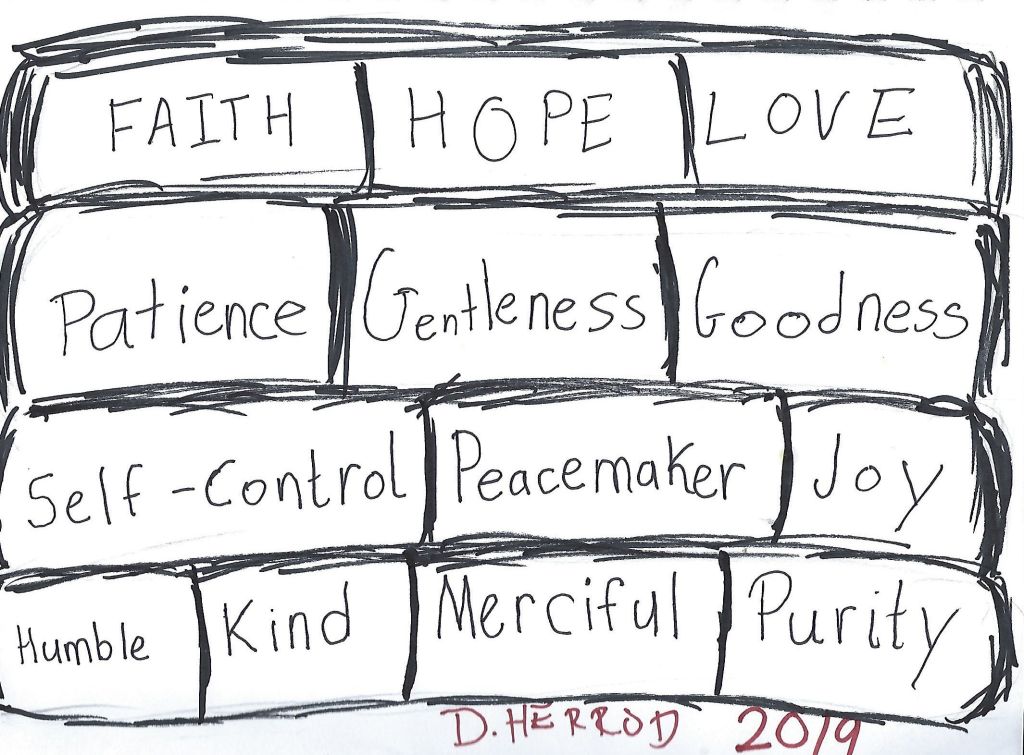 FAITH HOPE LOVE
Patience Gentleness Goodness
Self-Control Peacemaker Joy
Humble Kind Merciful Purity
D. HERROD 2019